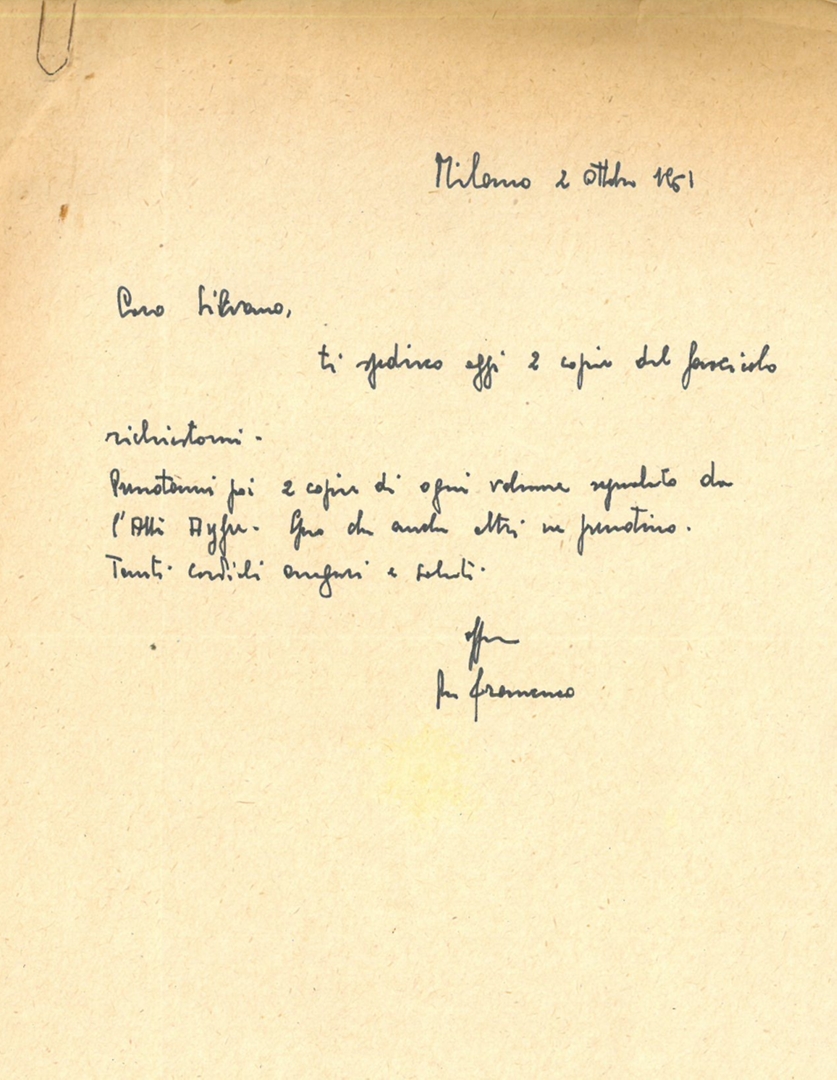 Milano 2 Ottobre 1961
Caro Silvano,
ti spedisco oggi 2 copie del fascicolo
richiestomi.
Prenotami poi 2 copie di ogni volume segnalato da
l'Atti Ayfre. che anche altri ne prenotino.
Tanti cordiali auguri e saluti.
aff.mo
Francesco